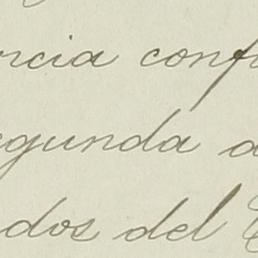 rcia conf
egunda d
dos del